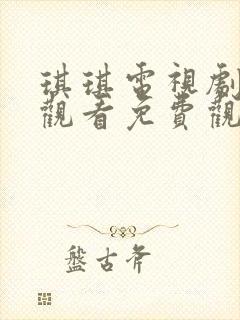 琪琪電視劇
觀看免費觀
盤古斧